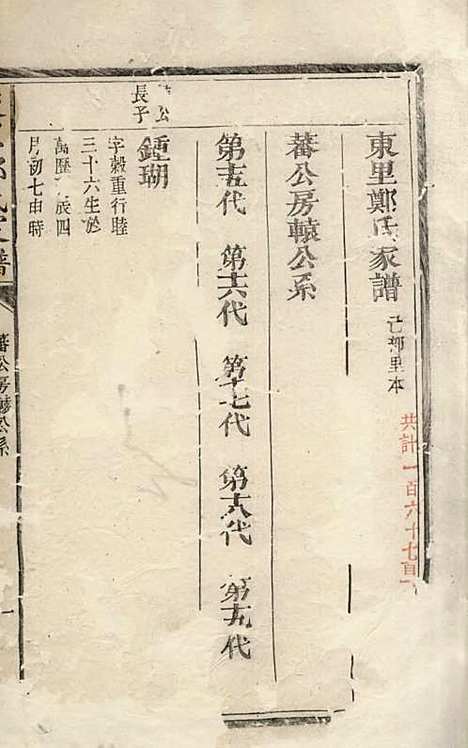 東里鄭氏家譜 己 里本
共計一百六十七頁
蕃公房轅公系
第十五代 第十六代 第十七代 第十八代 第十九代
公
長子
鍾瑚
字毅重行睦
三十六生於
萬歷 辰四
月初七申時
蕃公房轅公系
一